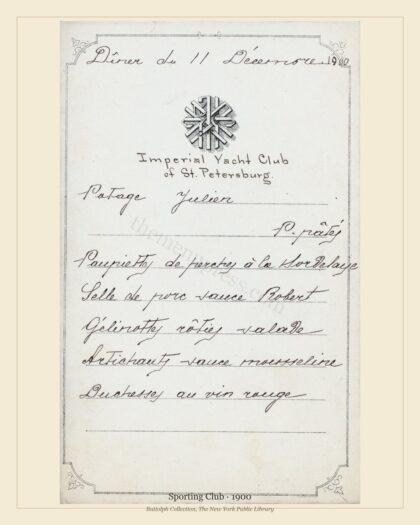 Dîner du 11 Décembre 1900
Imperial Yacht Club
of St. Petersburg.
Potage Julien
P. pâtés
Paupiettes de perches à la Hordelaise
Selle de porc sauce Robert
Gélinottes rôties salade
Artichauts sauce mousseline
Duchesses au vin rouge
themenupress.com
Sporting Club · 1900
Buttolph Collection, The New York Public Library